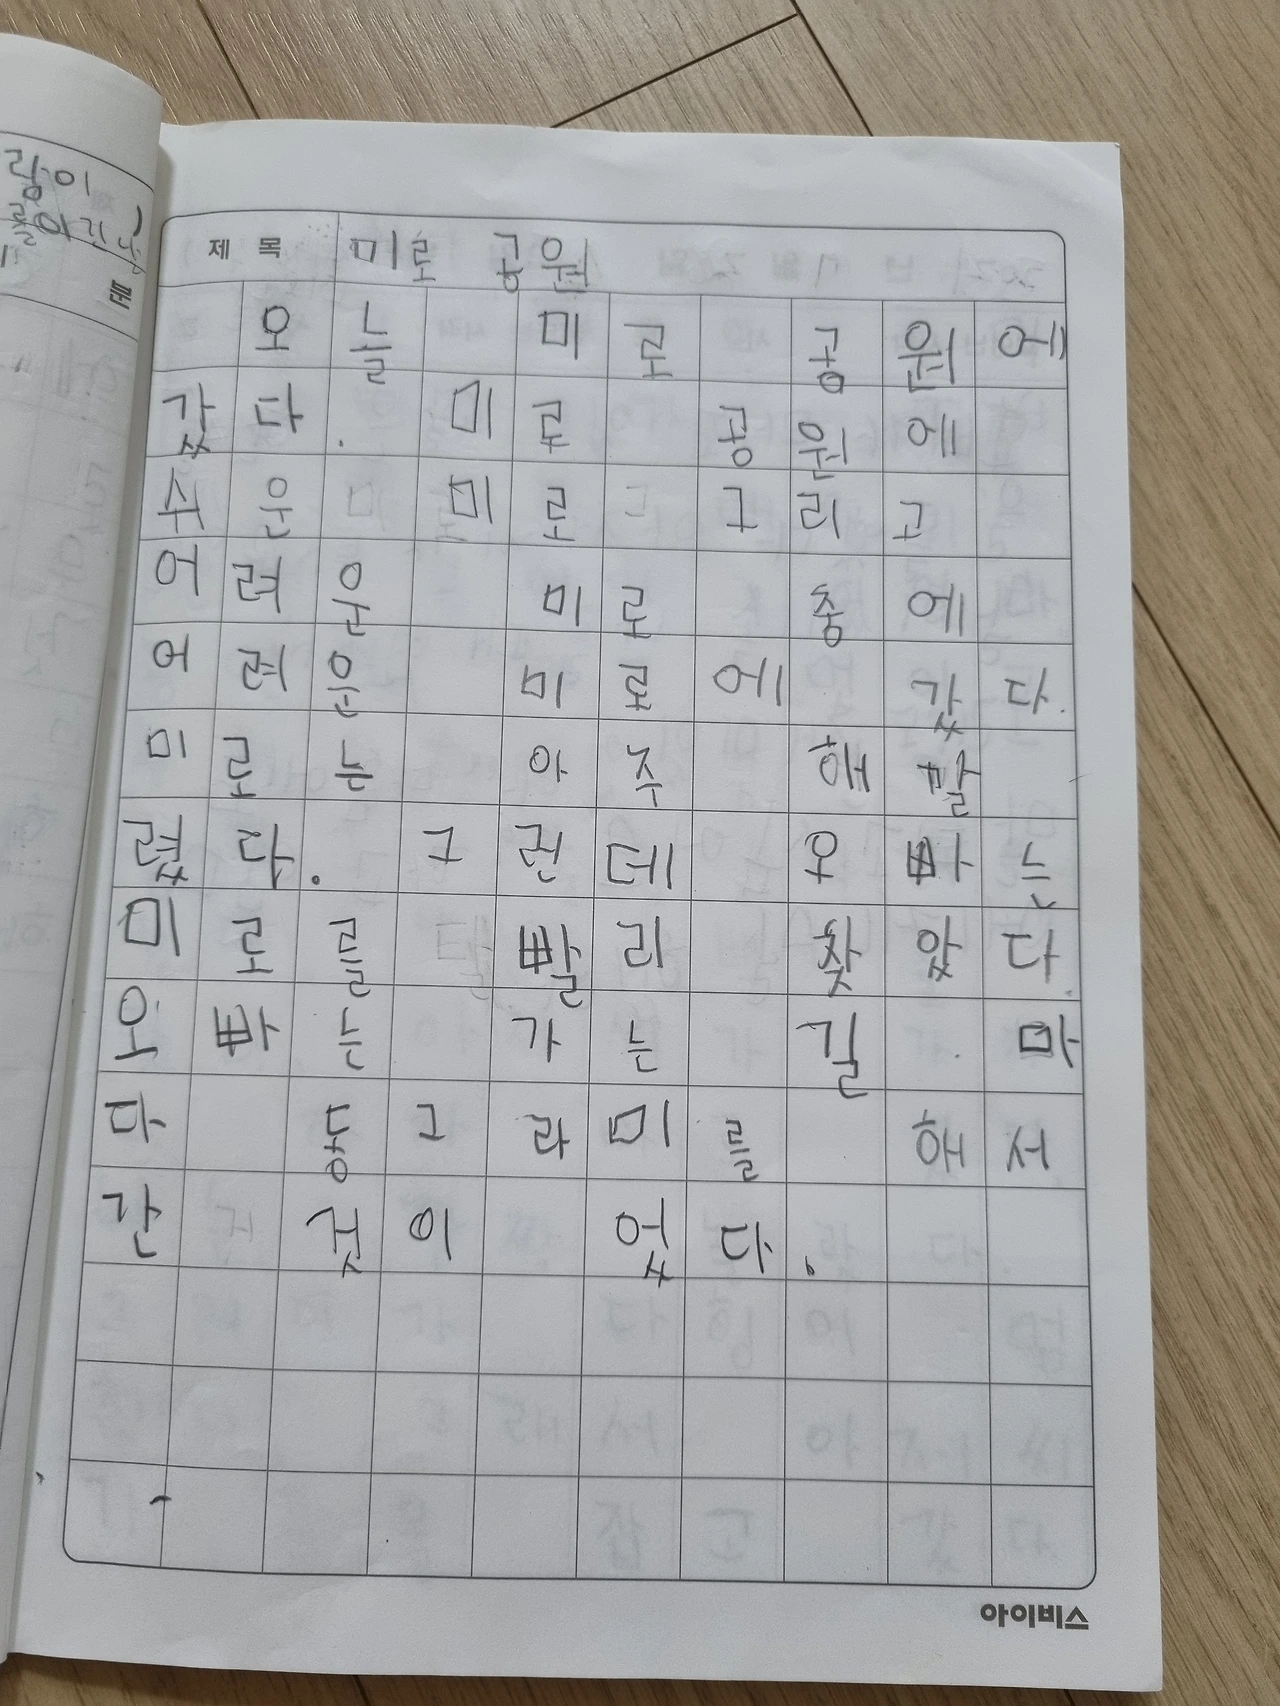 람이
제 목 미로 공원
오늘 미로 공원에
갔다. 미로 공원에
쉬운 미로 그리고
어려운 미로 중에
어려운 미로에 갔다.
미로는 아주 해깔
렸다. 그런데 오빠는
미로를 빨리 찾았다.
오빠는 가는 길 마
다 동그라미를 해서
간 것이 었다.
아이비스